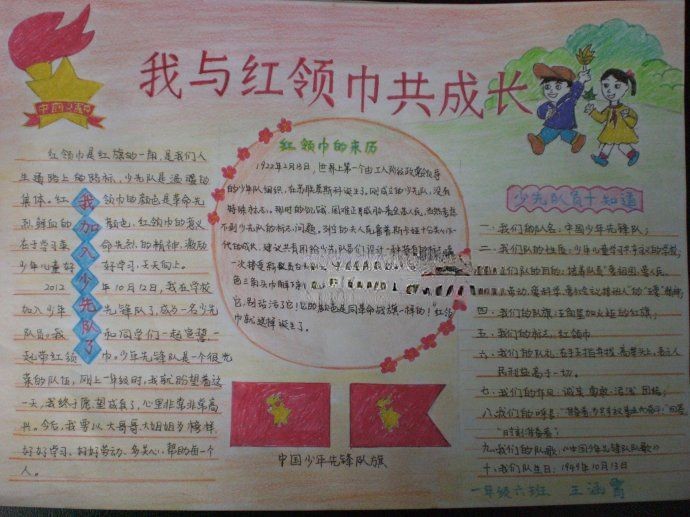 我与红领巾共成长
中国少年
红领巾是红旗的一角,是我们人
生道路上的路标,少先队是温暖的
集体。红领巾的颜色是革命先
烈鲜血的颜色,红领巾的意义
在于学习革命先烈的精神,激励
少年儿童好好学习,天天向上。
2012年10月12日,我在学校
加入少年先锋队了,成为一名少先
队员。我和同学们一起宣誓一
起带红领巾。少年先锋队是个很光
荣的队伍,刚上一年级时,我就盼望着这
一天,我终于愿望成真了,心里非常非常高
兴。今后,我要以大哥哥大姐姐为榜样,
好好学习、好好劳动、多关心、帮助每一个
人。
我加入少先队了
红领巾的来历
1922年2月13日,世界上第一个由工人阶级政党领导
的少年队组织,在苏联莫斯科诞生了。刚成立的少先队,没有
特殊标志。
一次接受新队员
色三角头巾解下来
它,别玷污了它!它的颜色是同革命战旗一样的!红领
巾就这样诞生了。
中国少年先锋队队旗
少先队员十知道
一、我们的队名:中国少年先锋队;
二、我们队的性质:少年儿童学习共产主义的学校;
三、我们队的目的:培养队员“爱祖国、爱人民、
爱劳动、爱科学、爱社会主义接班人”的“五爱”精神;
四、我们的队旗:五角星加火炬的红旗;
五、我们的标志:红领巾
六、我们的队礼:右手五指并拢,高举头上,表示人
民利益高于一切。
七、我们的作风:诚实、勇敢、活泼、团结;
八、我们的呼号:“准备着:为共产主义事业而奋斗!”回答
“时刻准备着!”
九、我们的队歌:《中国少年先锋队队歌》
十、我们队生日:1949年10月13日
一年级六班 王涵